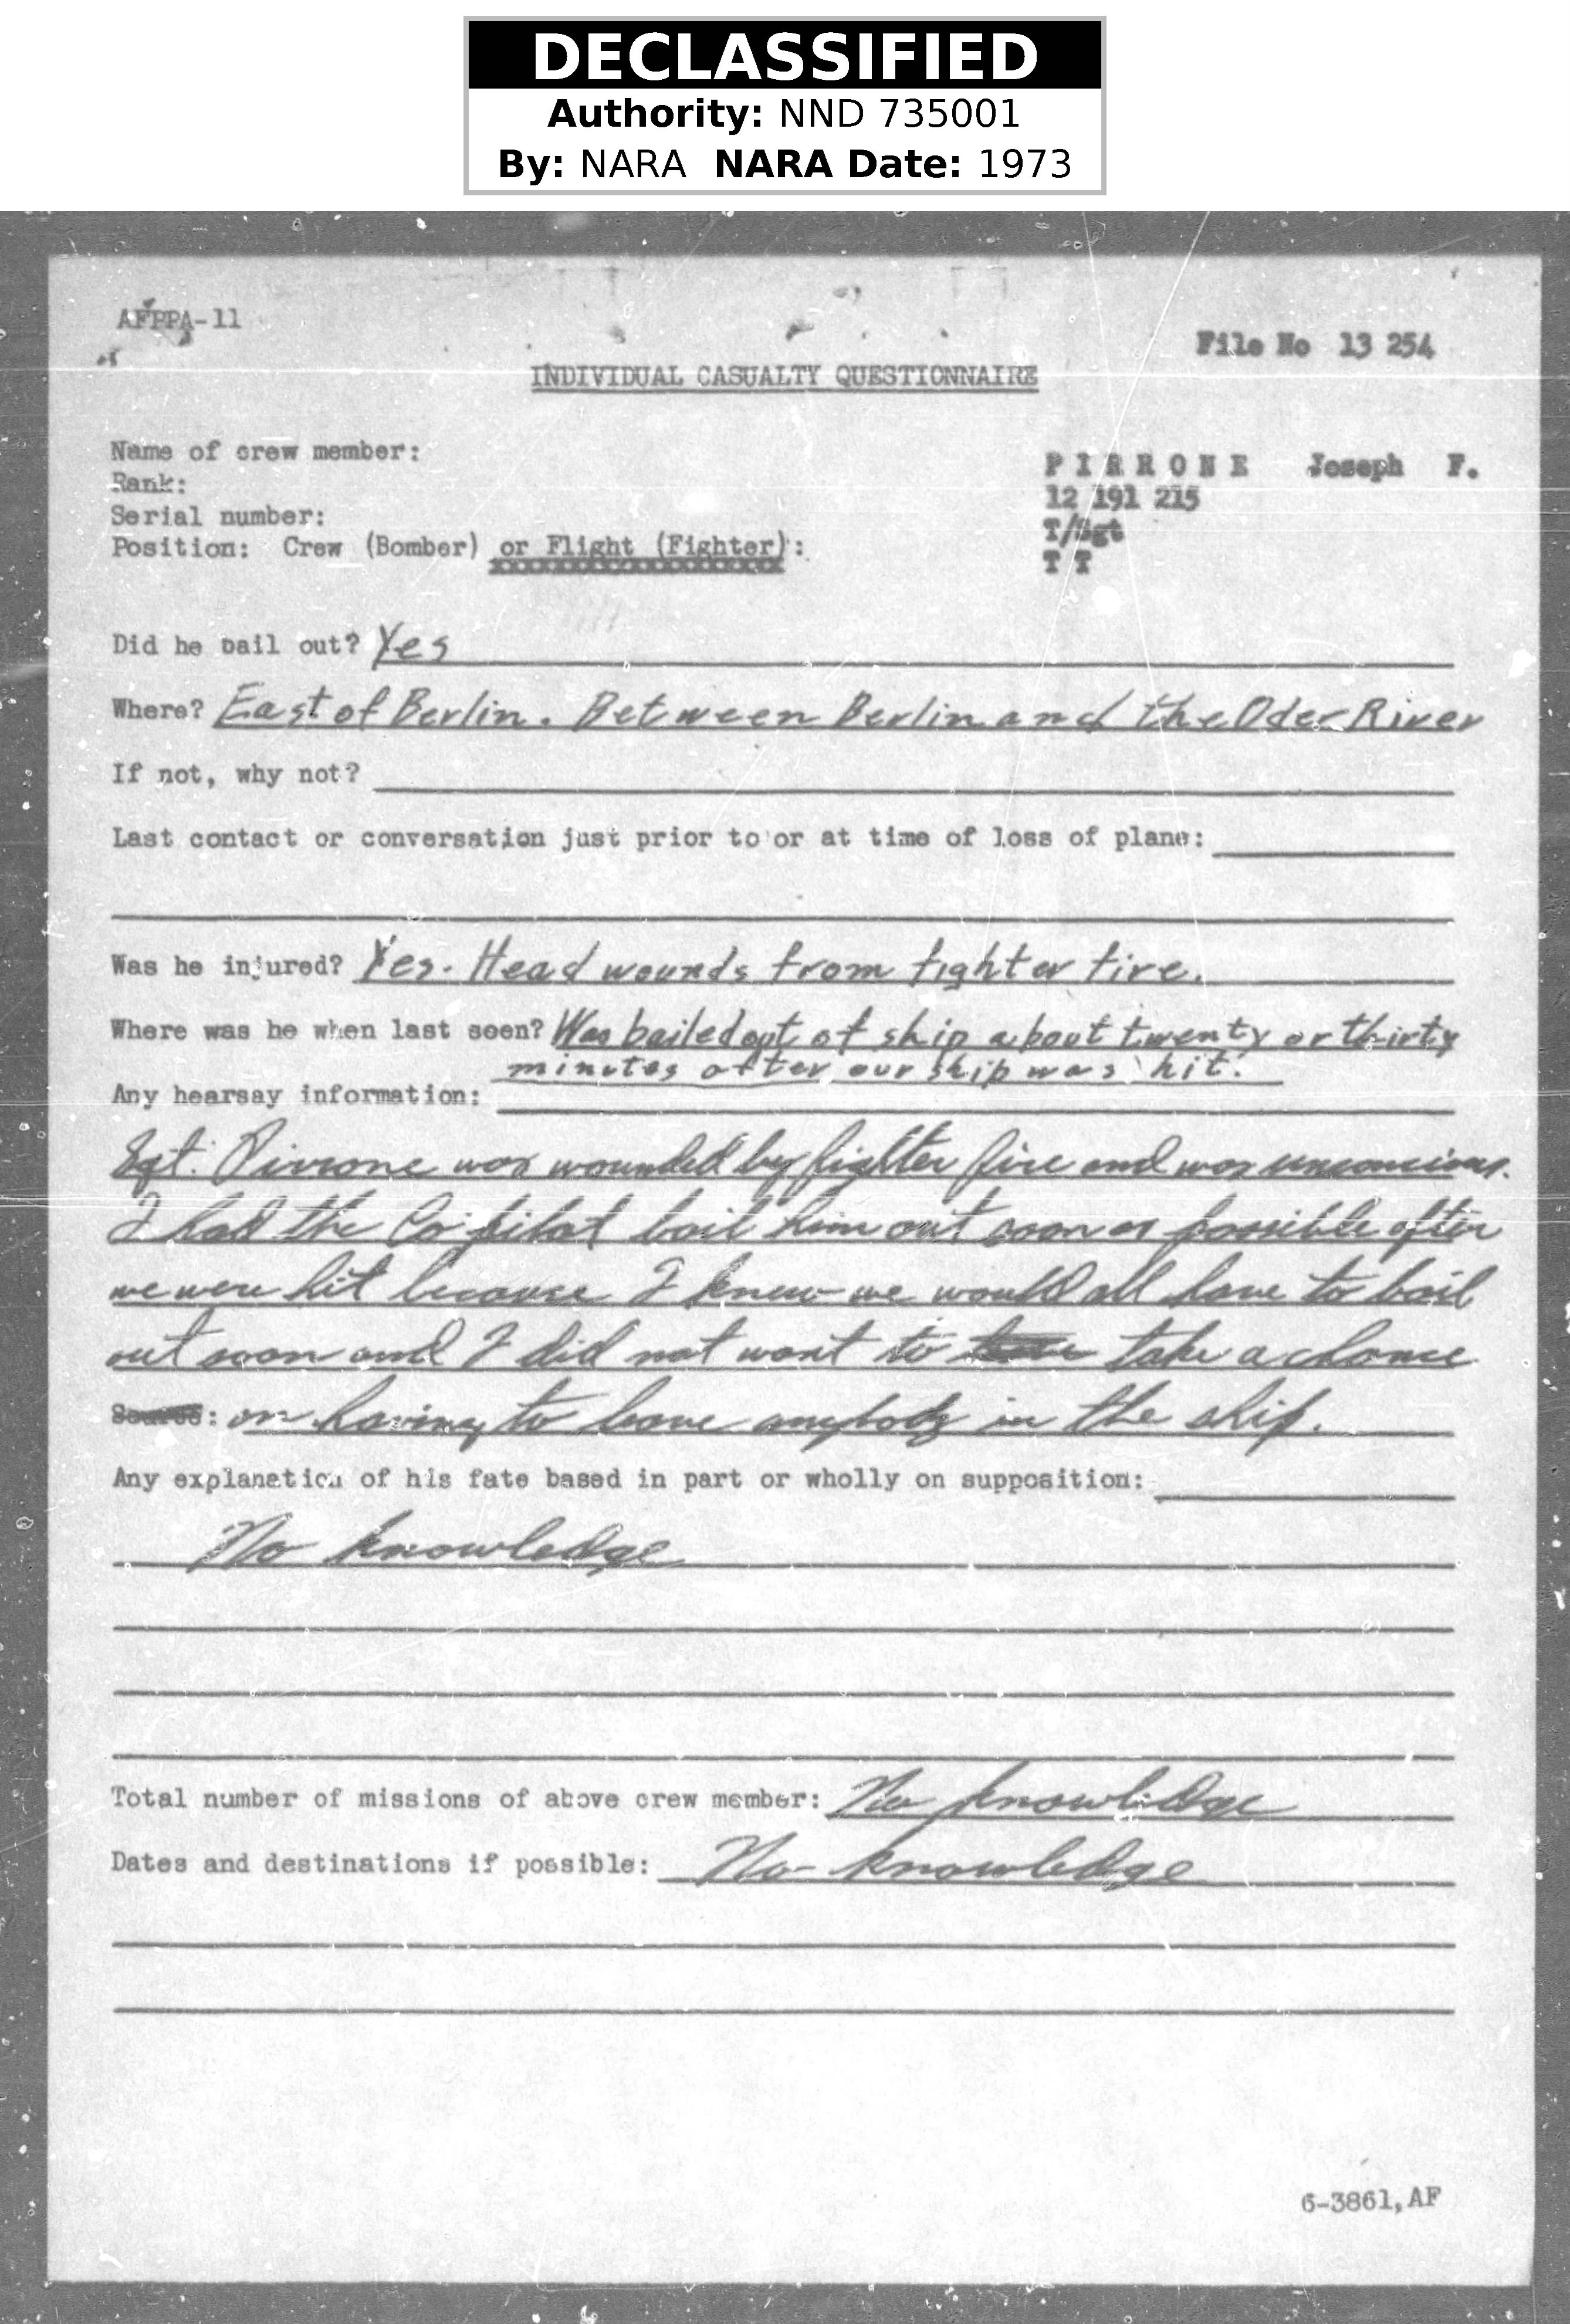 DECLASSIFIED
Authority: NND 735001
By: NARA NARA Date: 1973
AFPPA-11
File No 13 254
INDIVIDUAL CASUALTY QUESTIONNAIRE
Name of crew member:
P I R R O N E Joseph F.
Rank:
12 191 215
Serial number:
T/Sgt
Position: Crew (Bomber) or Flight (Fighter):
T T
Did he bail out? Yes
Where? East of Berlin. Between Berlin and the Oder River
If not, why not?
Last contact or conversation just prior to or at time of loss of plane:
Was he injured? Yes. Head wounds from fighter fire.
Where was he when last seen? Was bailed out of ship about twenty or thirty
minutes after our ship was hit.
Any hearsay information:
Sgt. Pirrone was wounded by fighter fire and was unconcious.
I had the Co-pilot bail him out soon as possible after
we were hit because I knew we would all have to bail
out soon and I did not want to take a chance
Source: on having to leave anybody in the ship.
Any explanation of his fate based in part or wholly on supposition:
No knowledge
Total number of missions of above crew member: No knowledge
Dates and destinations if possible: No knowledge
6-3861,AF